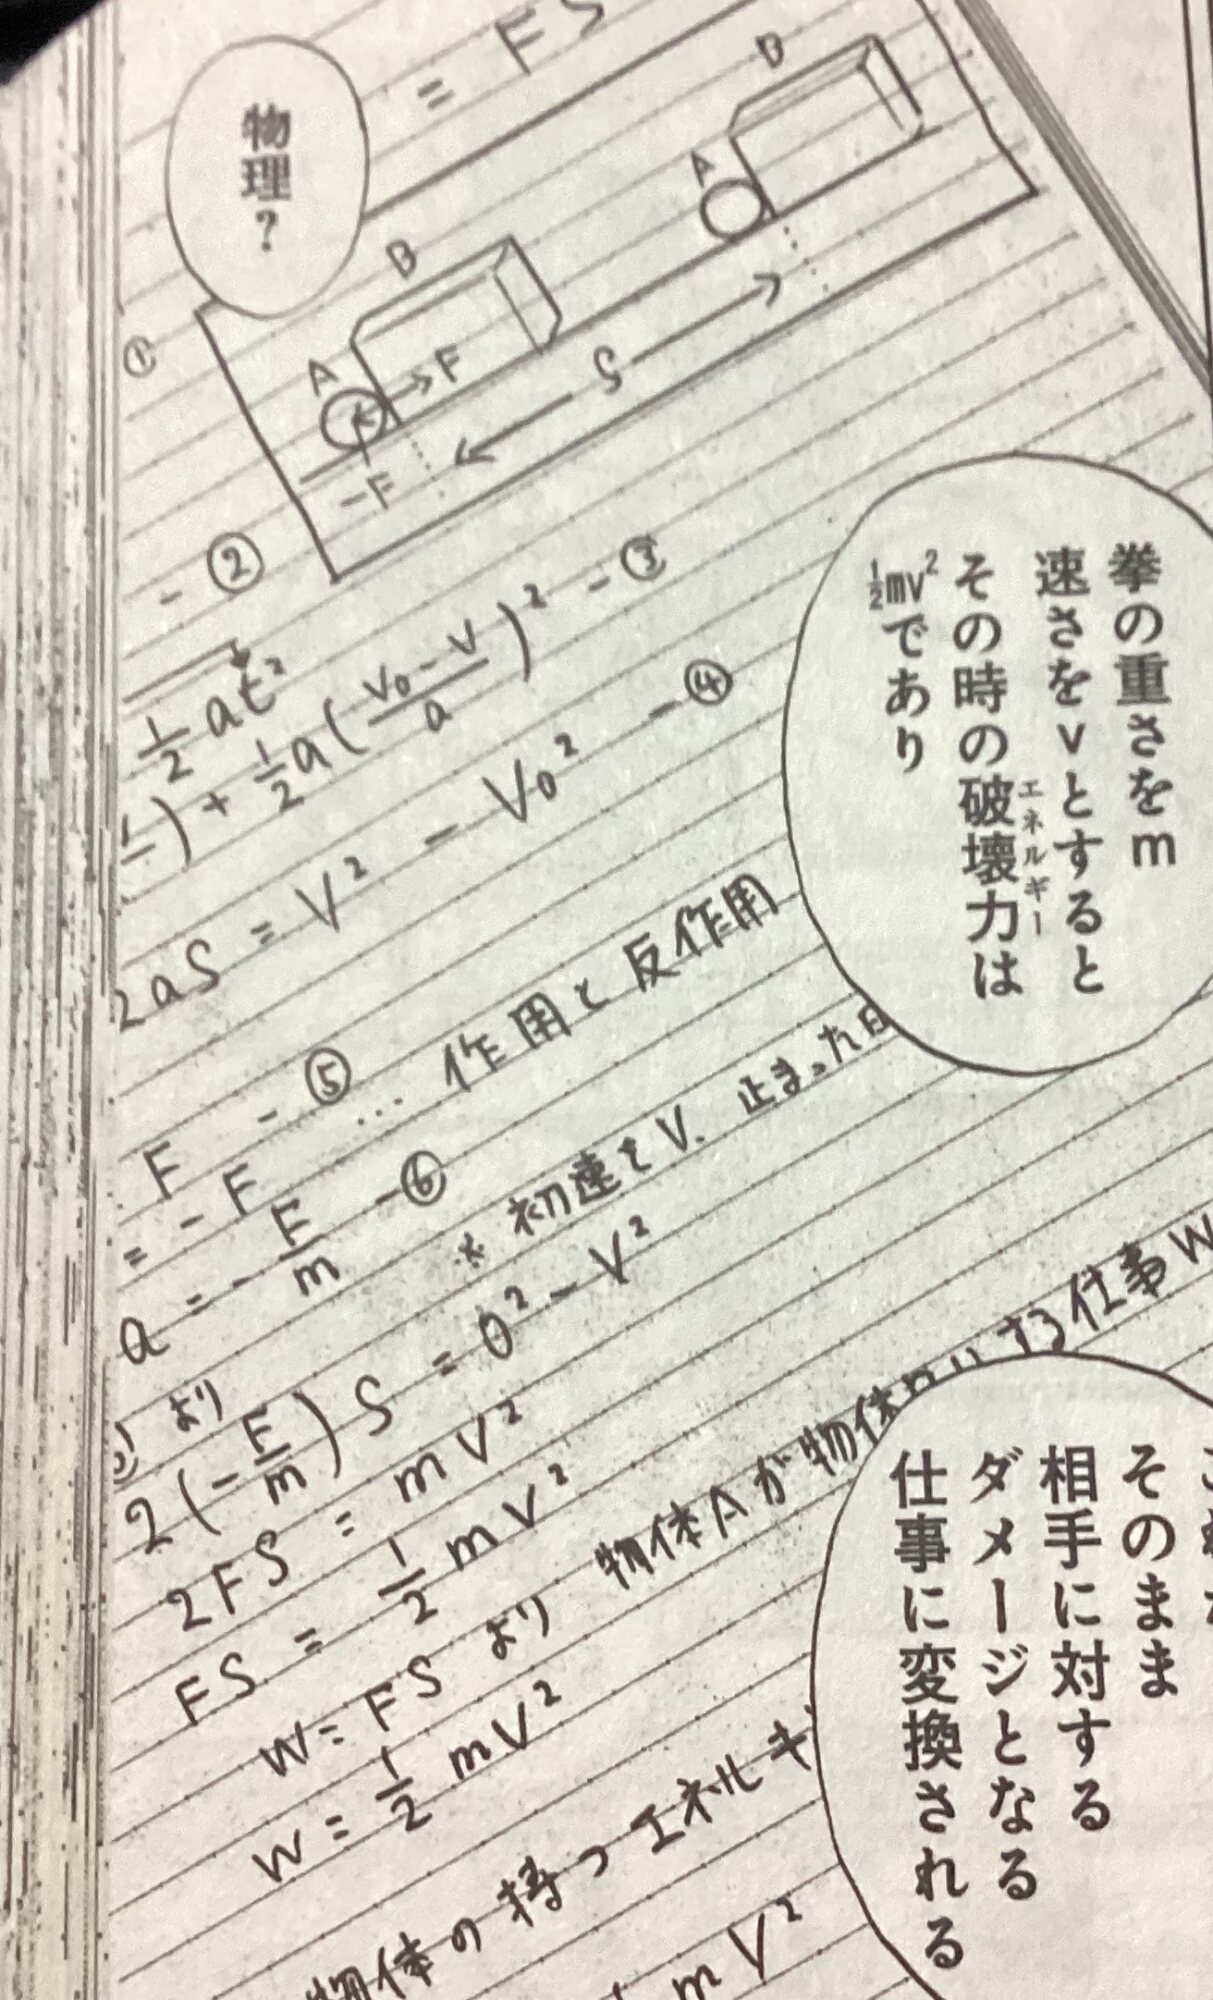 = FS
物理?
B
A
B
A
F
-F
S
①
- ②
1/2 at²
) + 1/2 a(V₀-V/a)² - ③
2aS = V² - V₀² - ④
F - ⑤
= -F … 作用と反作用
a = -F/m - ⑥
より ※初速をV. 止まった
2(-F/m)S = 0² - V²
2FS = mV²
FS = 1/2 mV²
W = FS より 物体Aが物体 する仕事W
W = 1/2 mV²
物体の持つエネルギ
mV²
拳の重さをm
速さをvとすると
その時の破壊力は
エネルギー
½mv²であり
そのまま
相手に対する
ダメージとなる
仕事に変換される